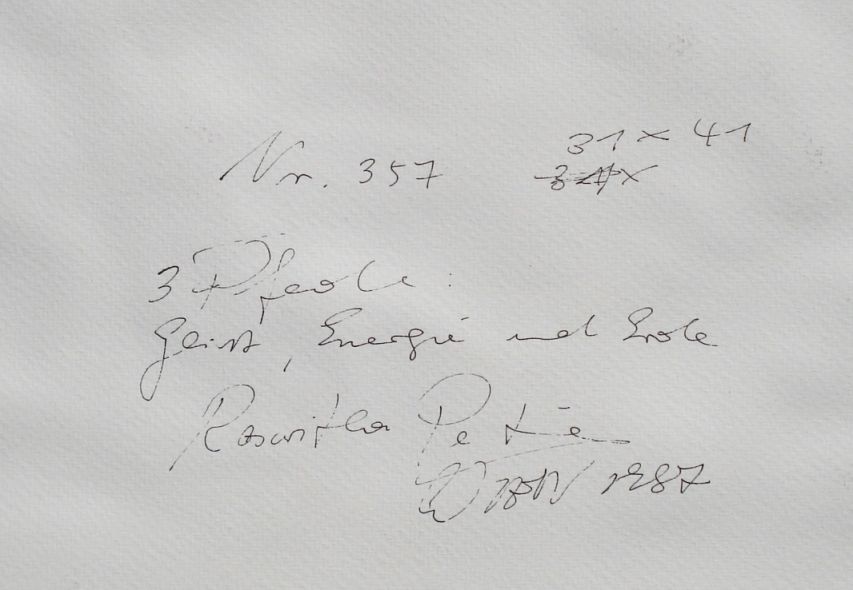 Nr. 357 31 x 41
3 Pfade:
Geist, Energie und Erde
Roswitha
1987